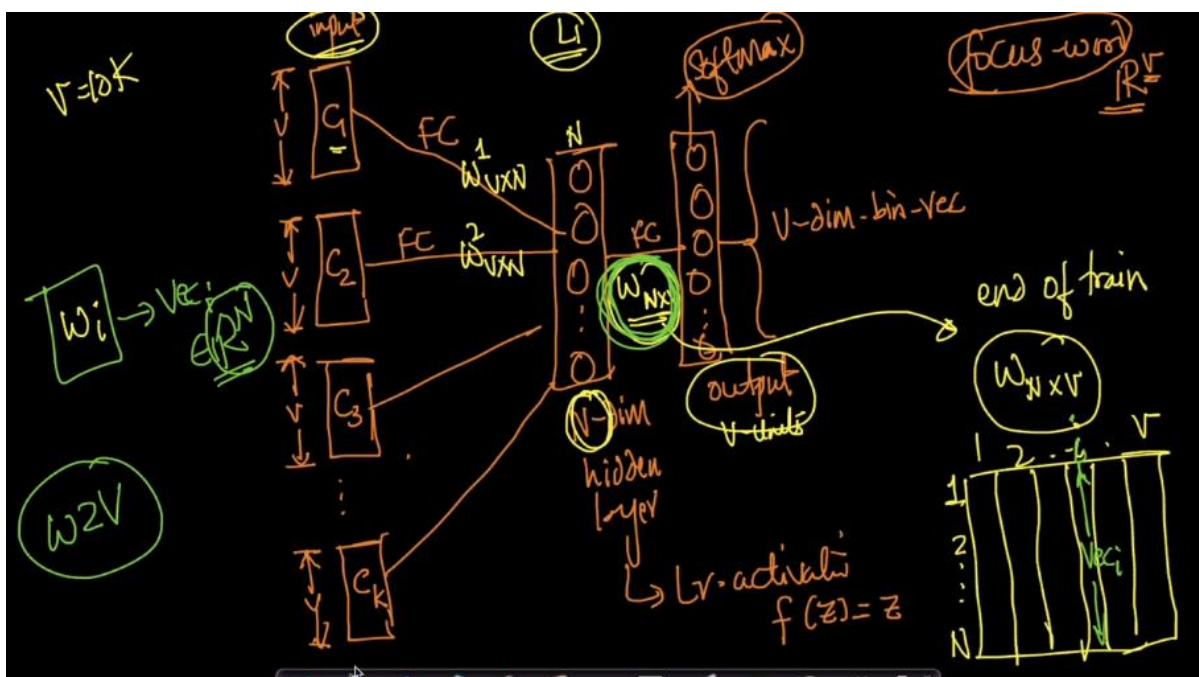 input
L1
Softmax
focus-word
ℝ^V
V=10K
V
C1
FC
W^1 V×N
N
V
C2
FC
W^2 V×N
FC
W' N×V
V-dim-bin-vec
Wi → Veci ∈ ℝ^N
V
C3
N-dim
hidden
layer
output
V-units
end of train
W N×V
1 2 .. i . V
1
2
N
Veci
W2V
V
CK
Lr. activatin
f(z)=z